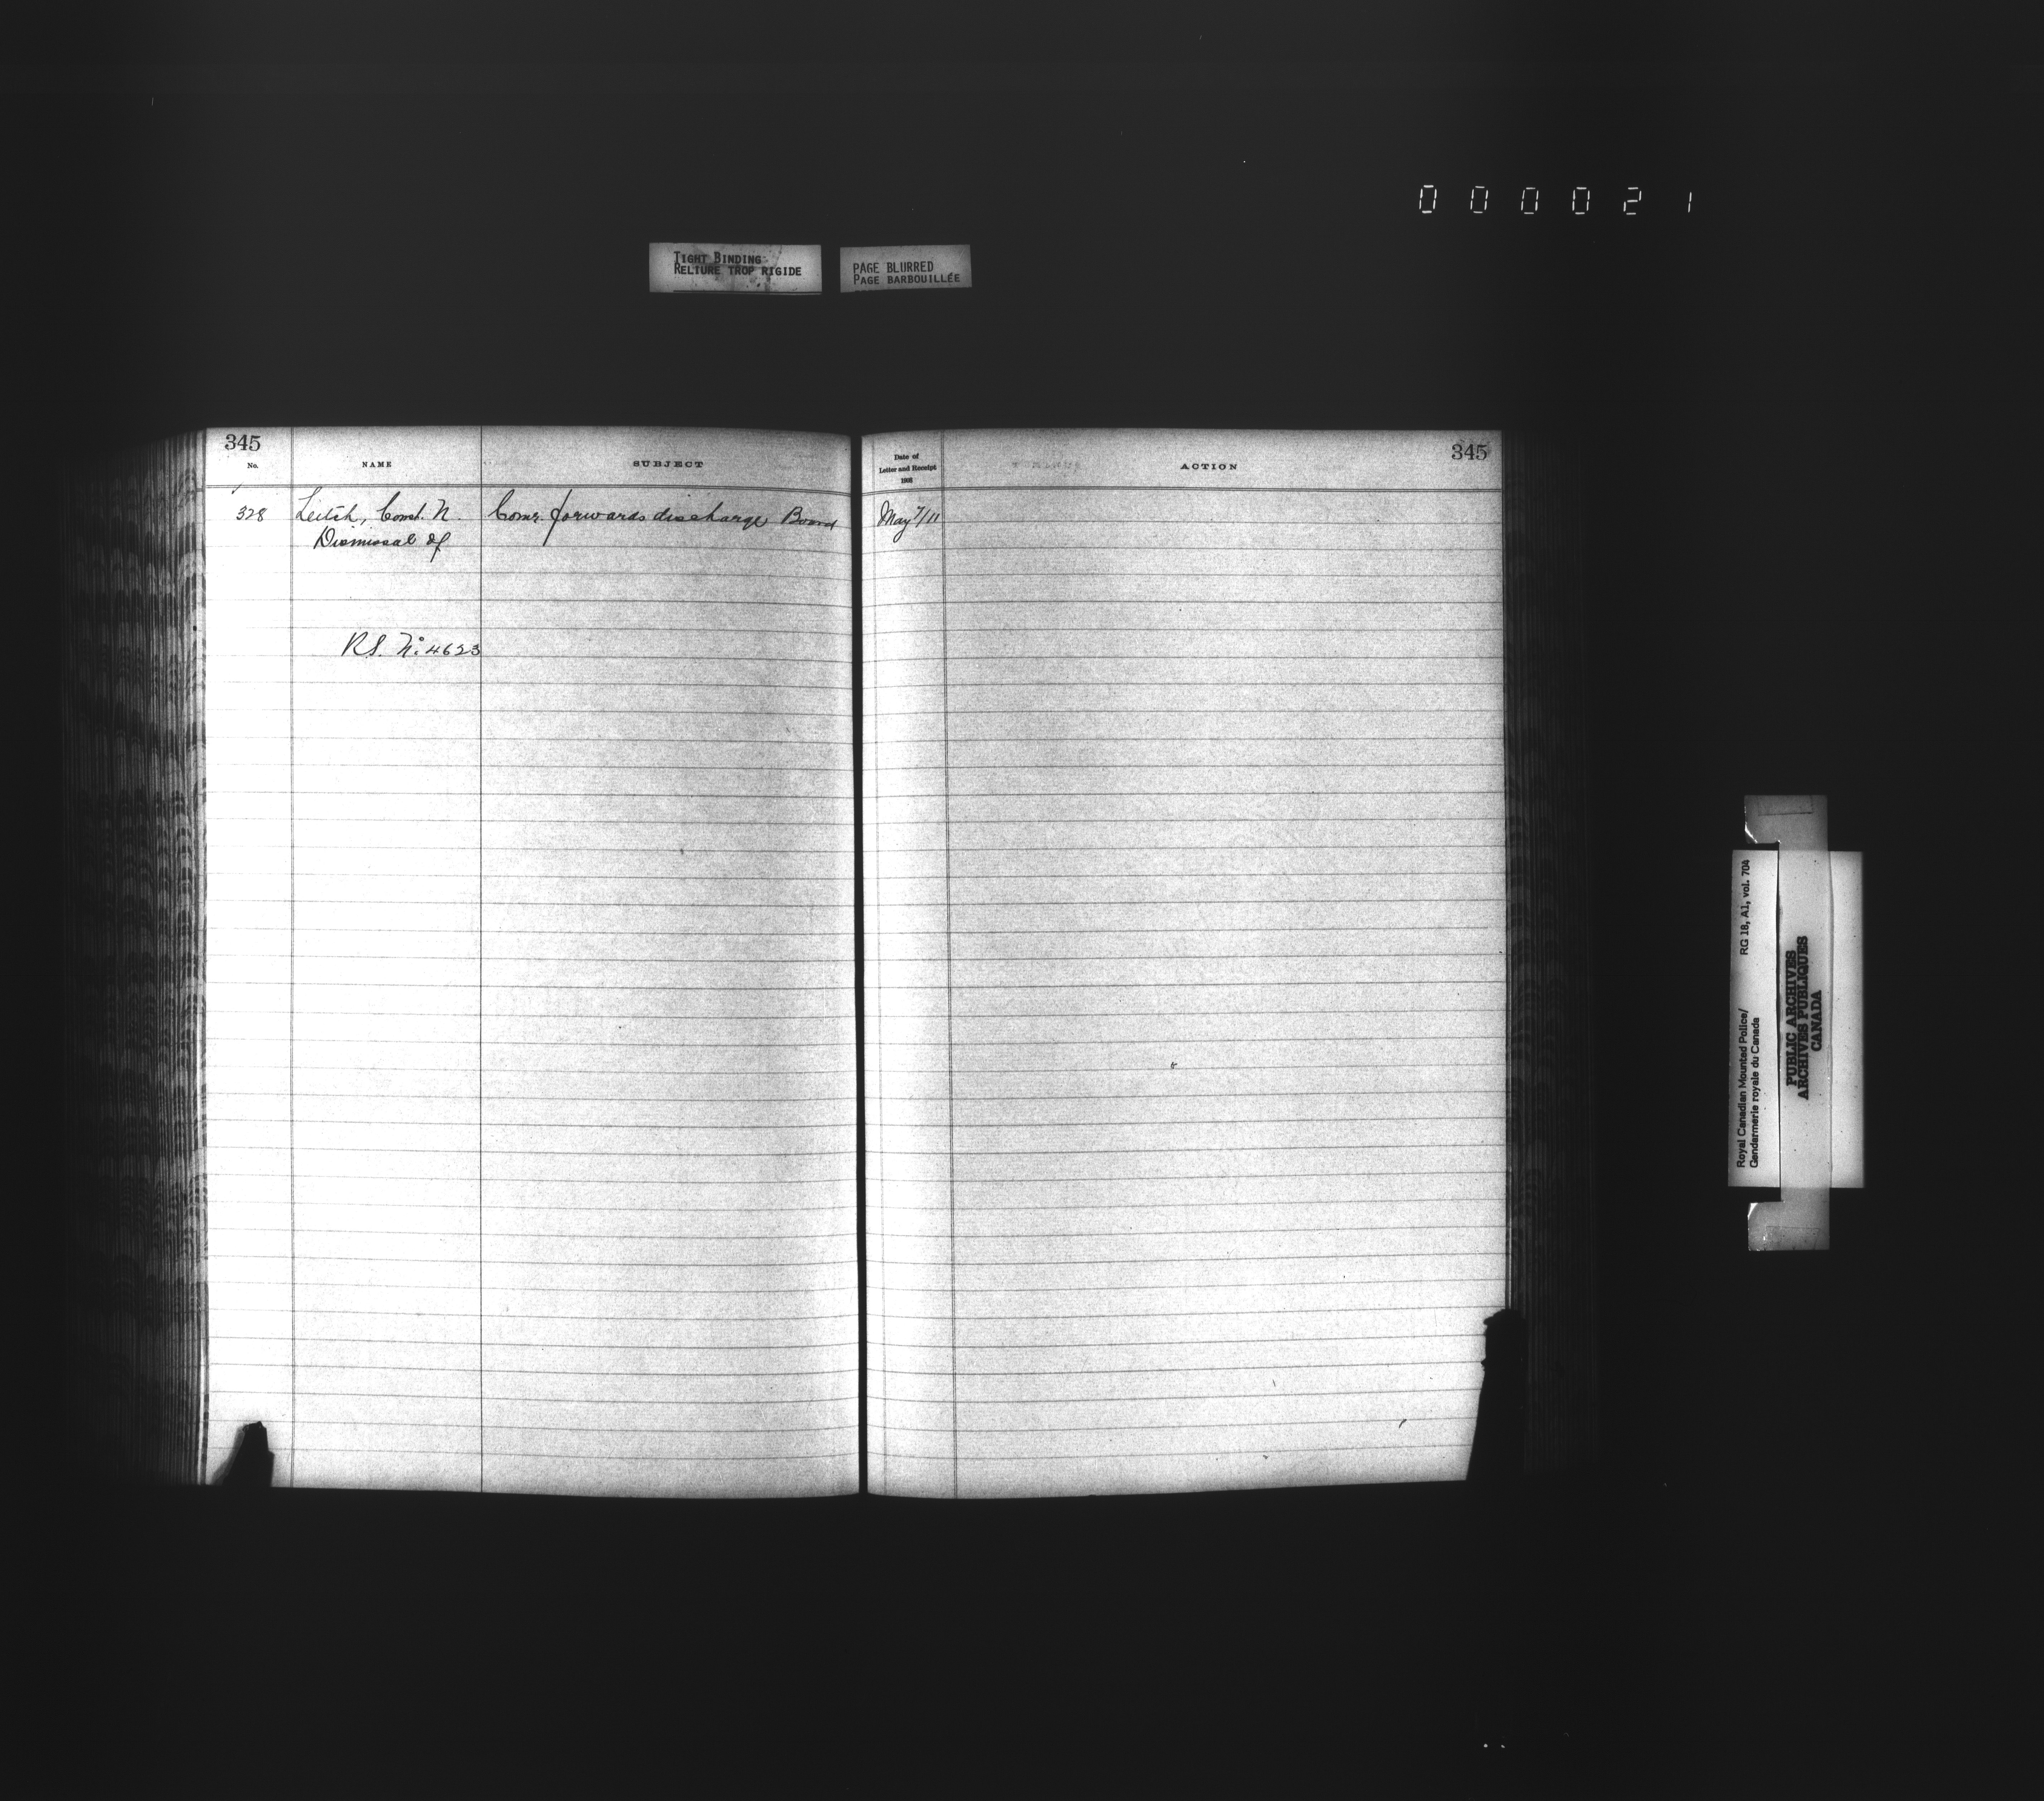 000021
TIGHT BINDING
RELIURE TROP RIGIDE
PAGE BLURRED
PAGE BARBOUILLÉE
345
No.
NAME
SUBJECT
328
Leitch, Const. N.
Dismissal of
Comr. forwards discharge Board
R.S. No. 4623
345
Date of
Letter and Receipt
1908
ACTION
May 7/11
Royal Canadian Mounted Police/
Gendarmerie royale du Canada
RG 18, A1, vol. 704
PUBLIC ARCHIVES
ARCHIVES PUBLIQUES
CANADA